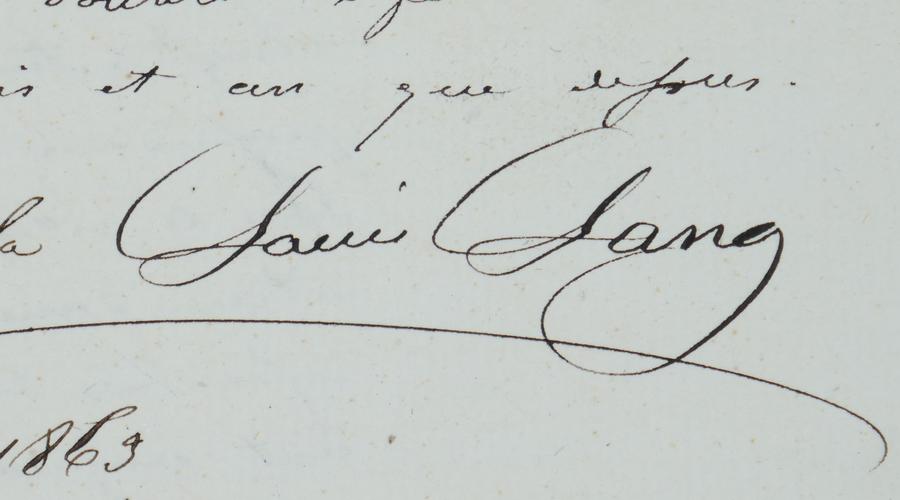 is et an que dessus.
la Louis Lang
1863